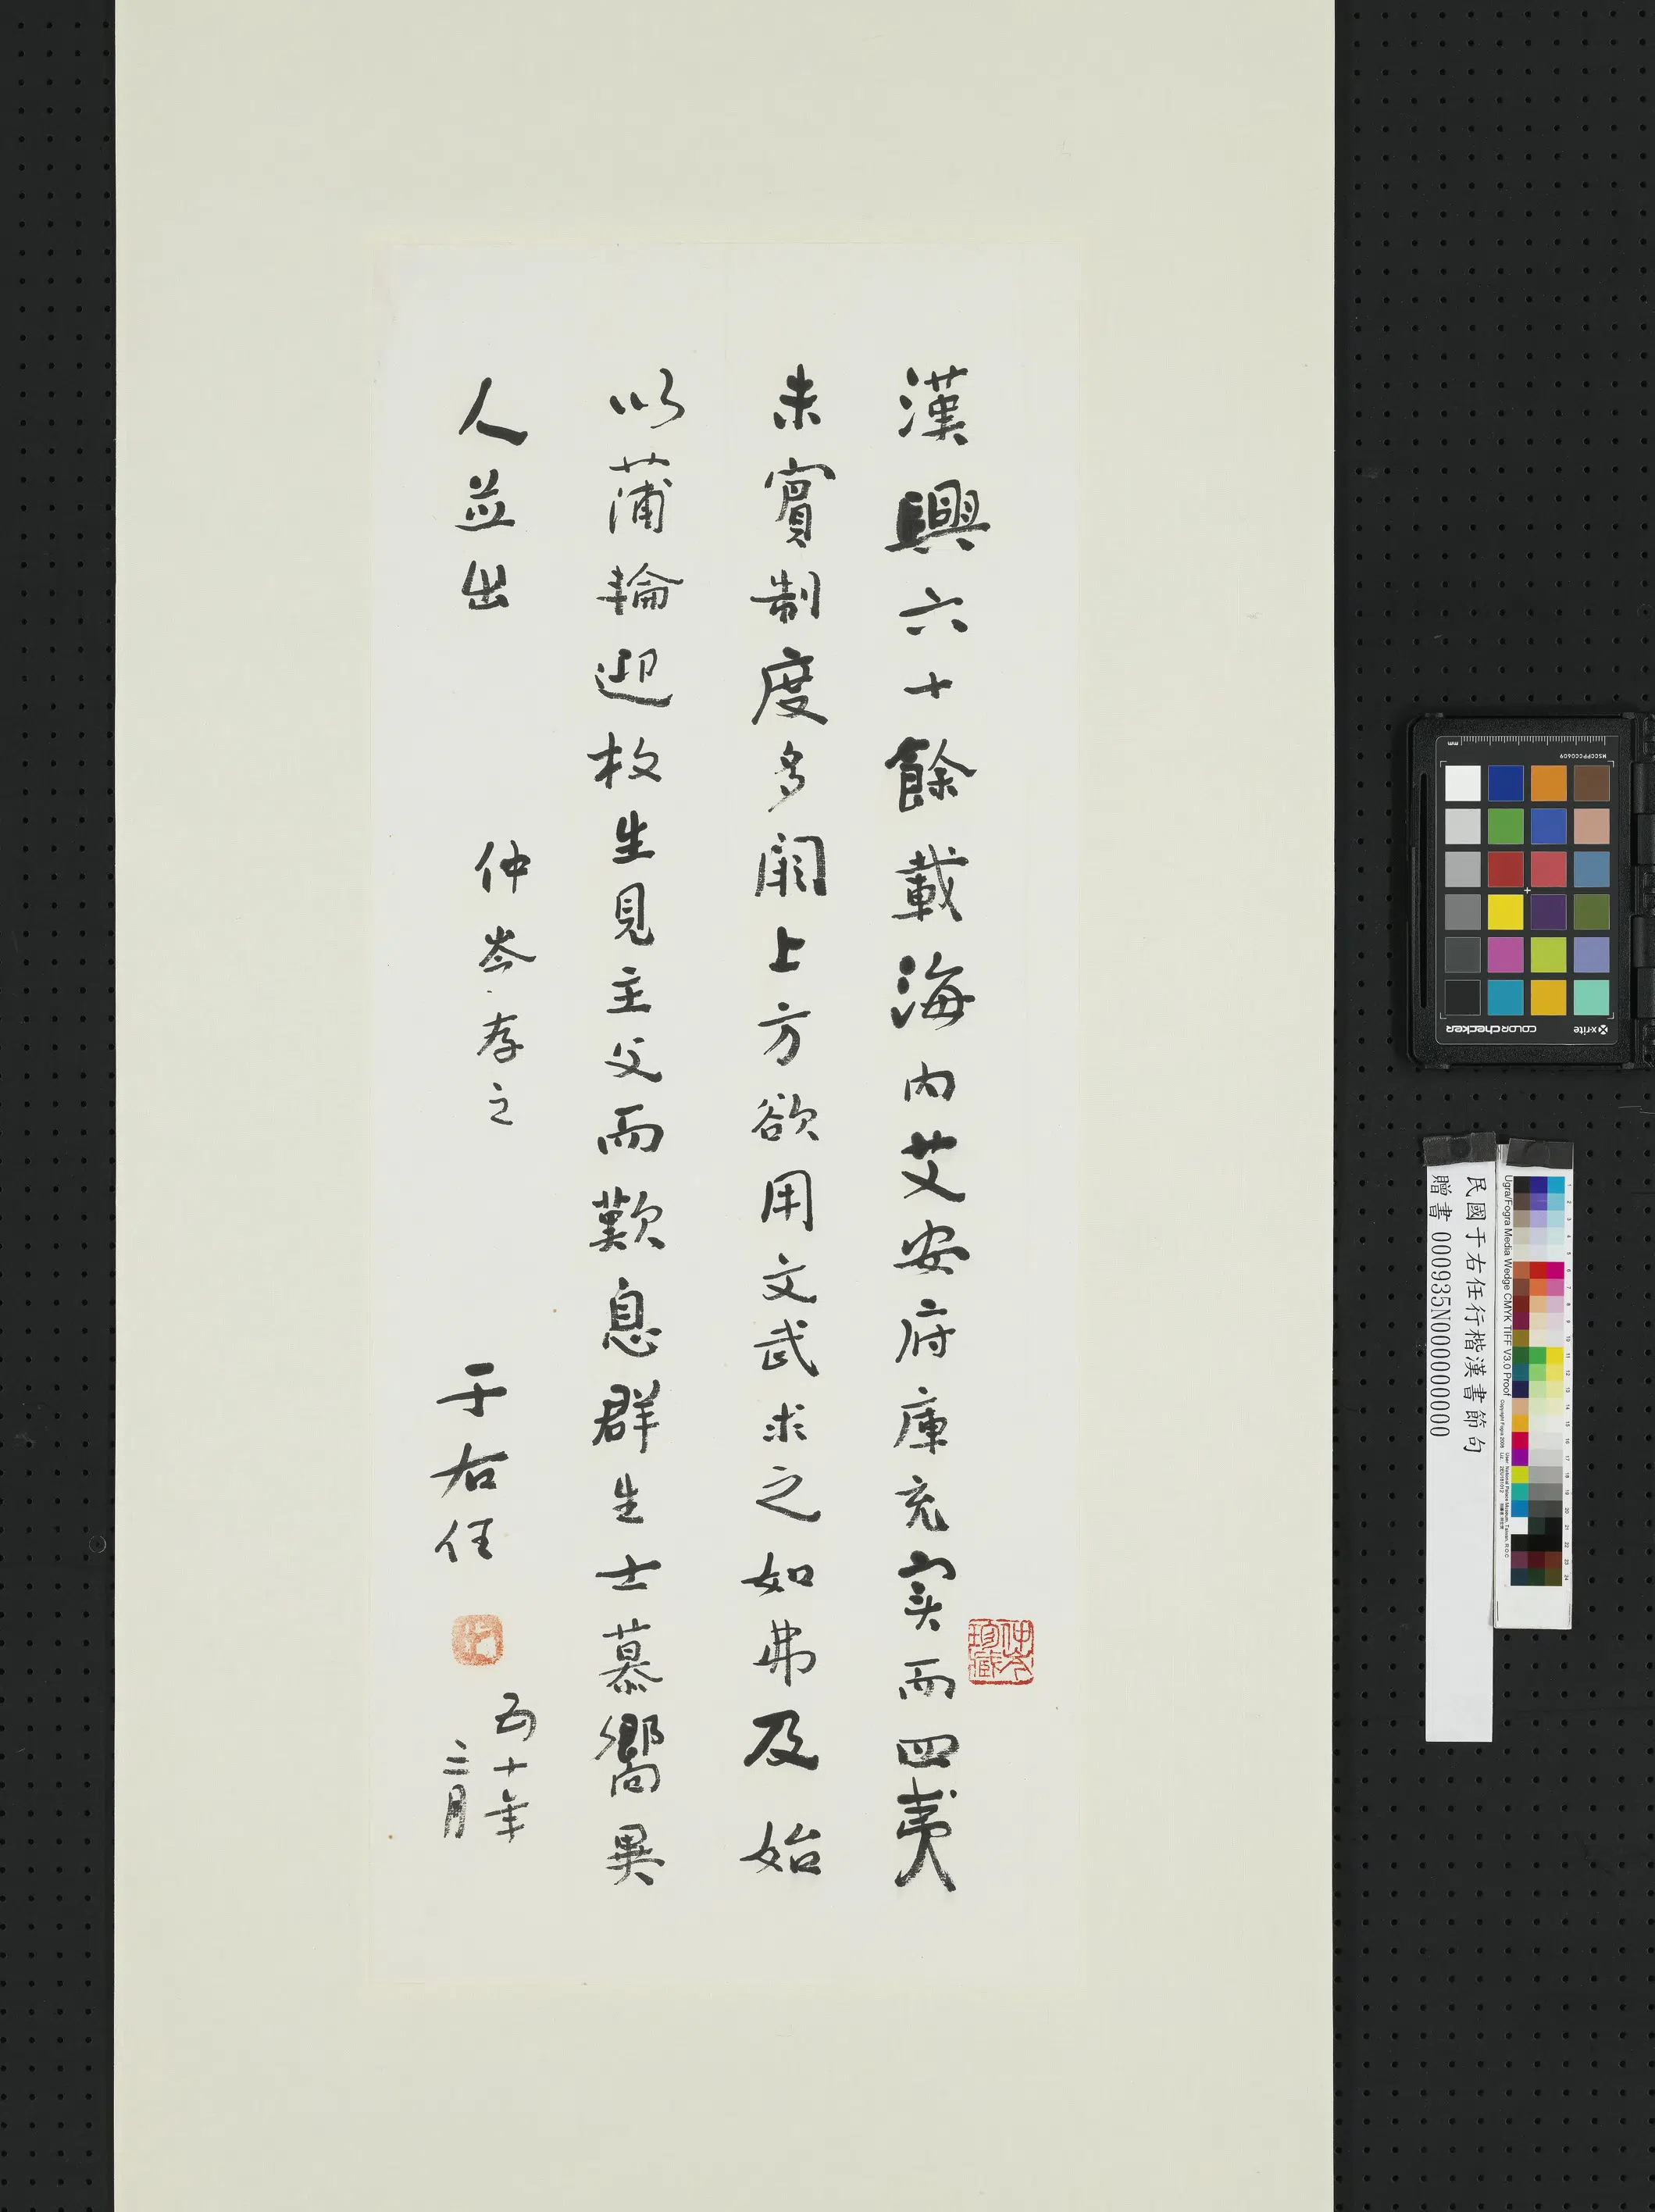 漢興六十餘載海内艾安府庫充実而四夷
未賓制度多闕上方欲用文武求之如弗及始
以蒲輪迎枚生見主父而歎息群生士慕嚮異
人並出
仲岑存之
于右任
五十年
二月
仲岑
珍藏
民國于右任行楷漢書節句
贈書 000935N000000000
Ugra/Fogra Media Wedge CMYK TIFF V3.0 Proof
x-rite
colorchecker
MSCCPPCC0609
mm